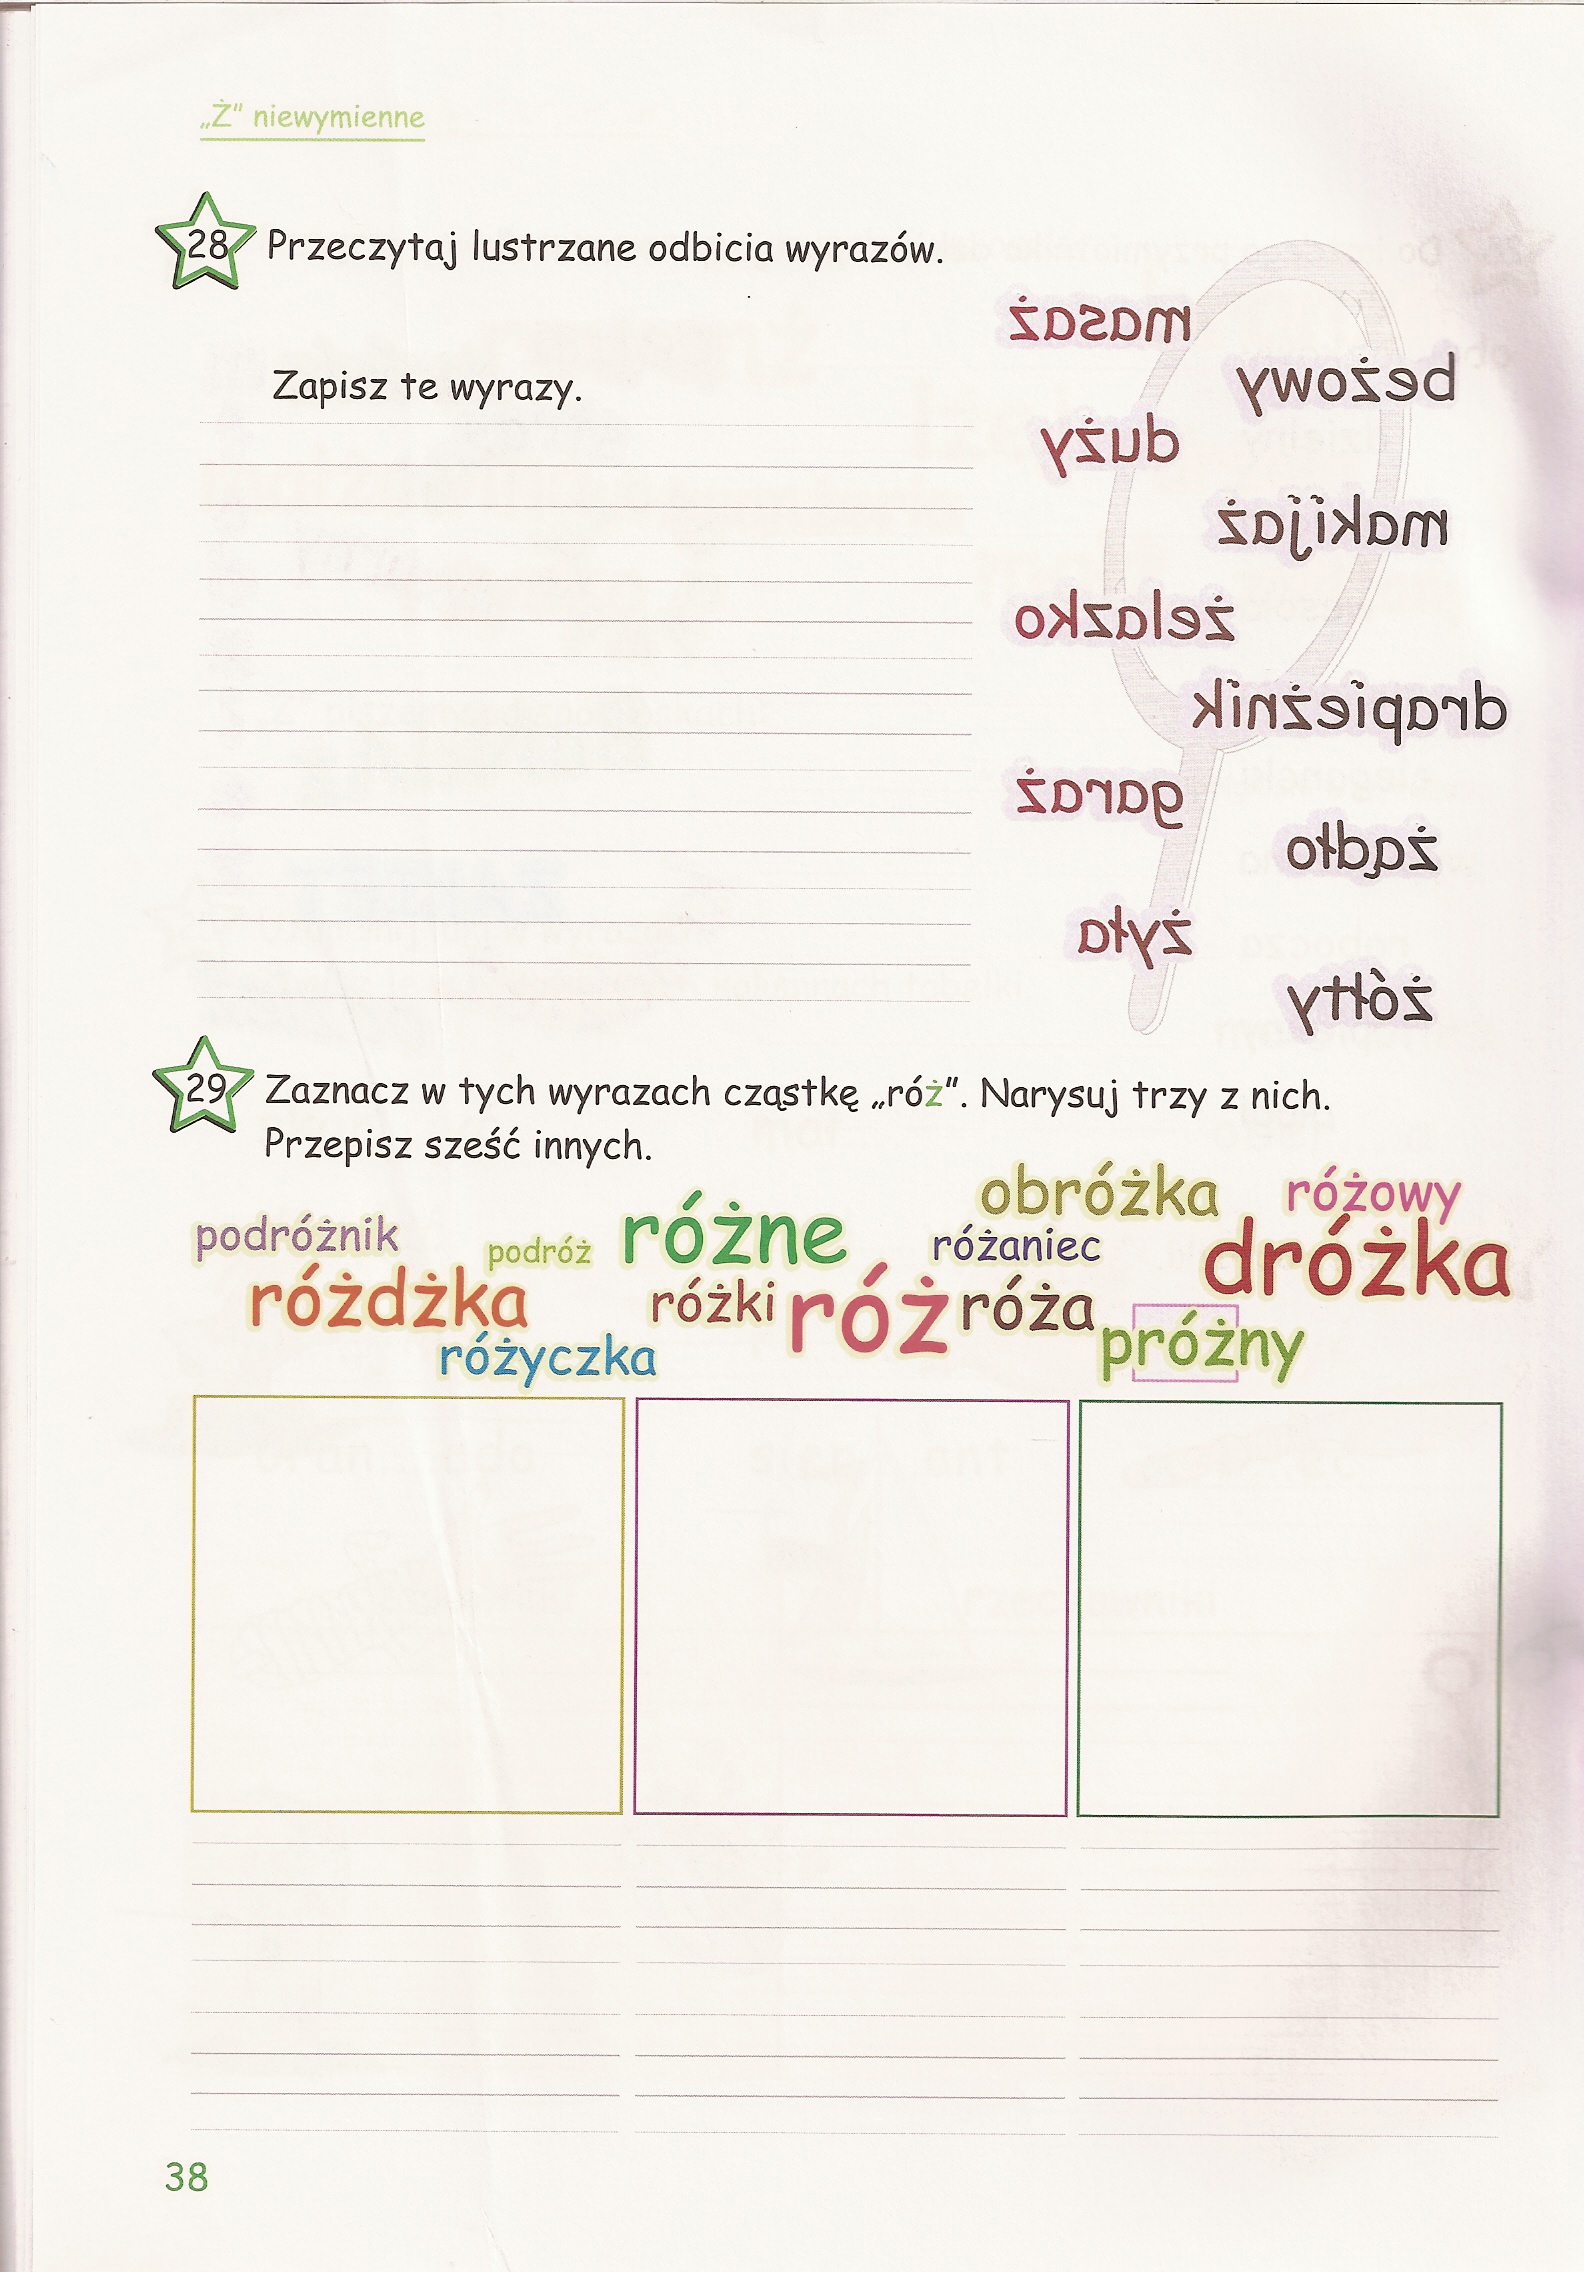 „Ż" niewymienne
28 Przeczytaj lustrzane odbicia wyrazów.
masaż
beżowy
Zapisz te wyrazy.
duży
makijaż
żelazko
drapieżnik
garaż
żądło
żyła
żółty
29 Zaznacz w tych wyrazach cząstkę „róż". Narysuj trzy z nich.
Przepisz sześć innych.
obróżka różowy
podróżnik podróż różne różaniec dróżka
różdżka różki róż róża próżny
różyczka
38